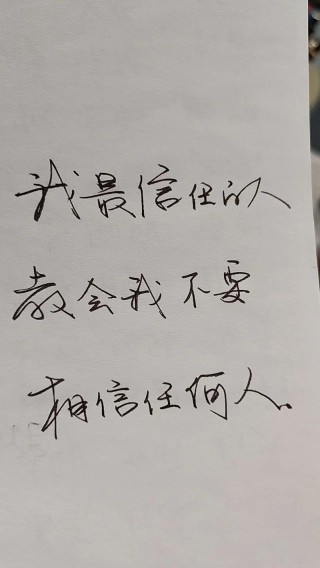 我最信任的人
教会我不要
相信任何人。